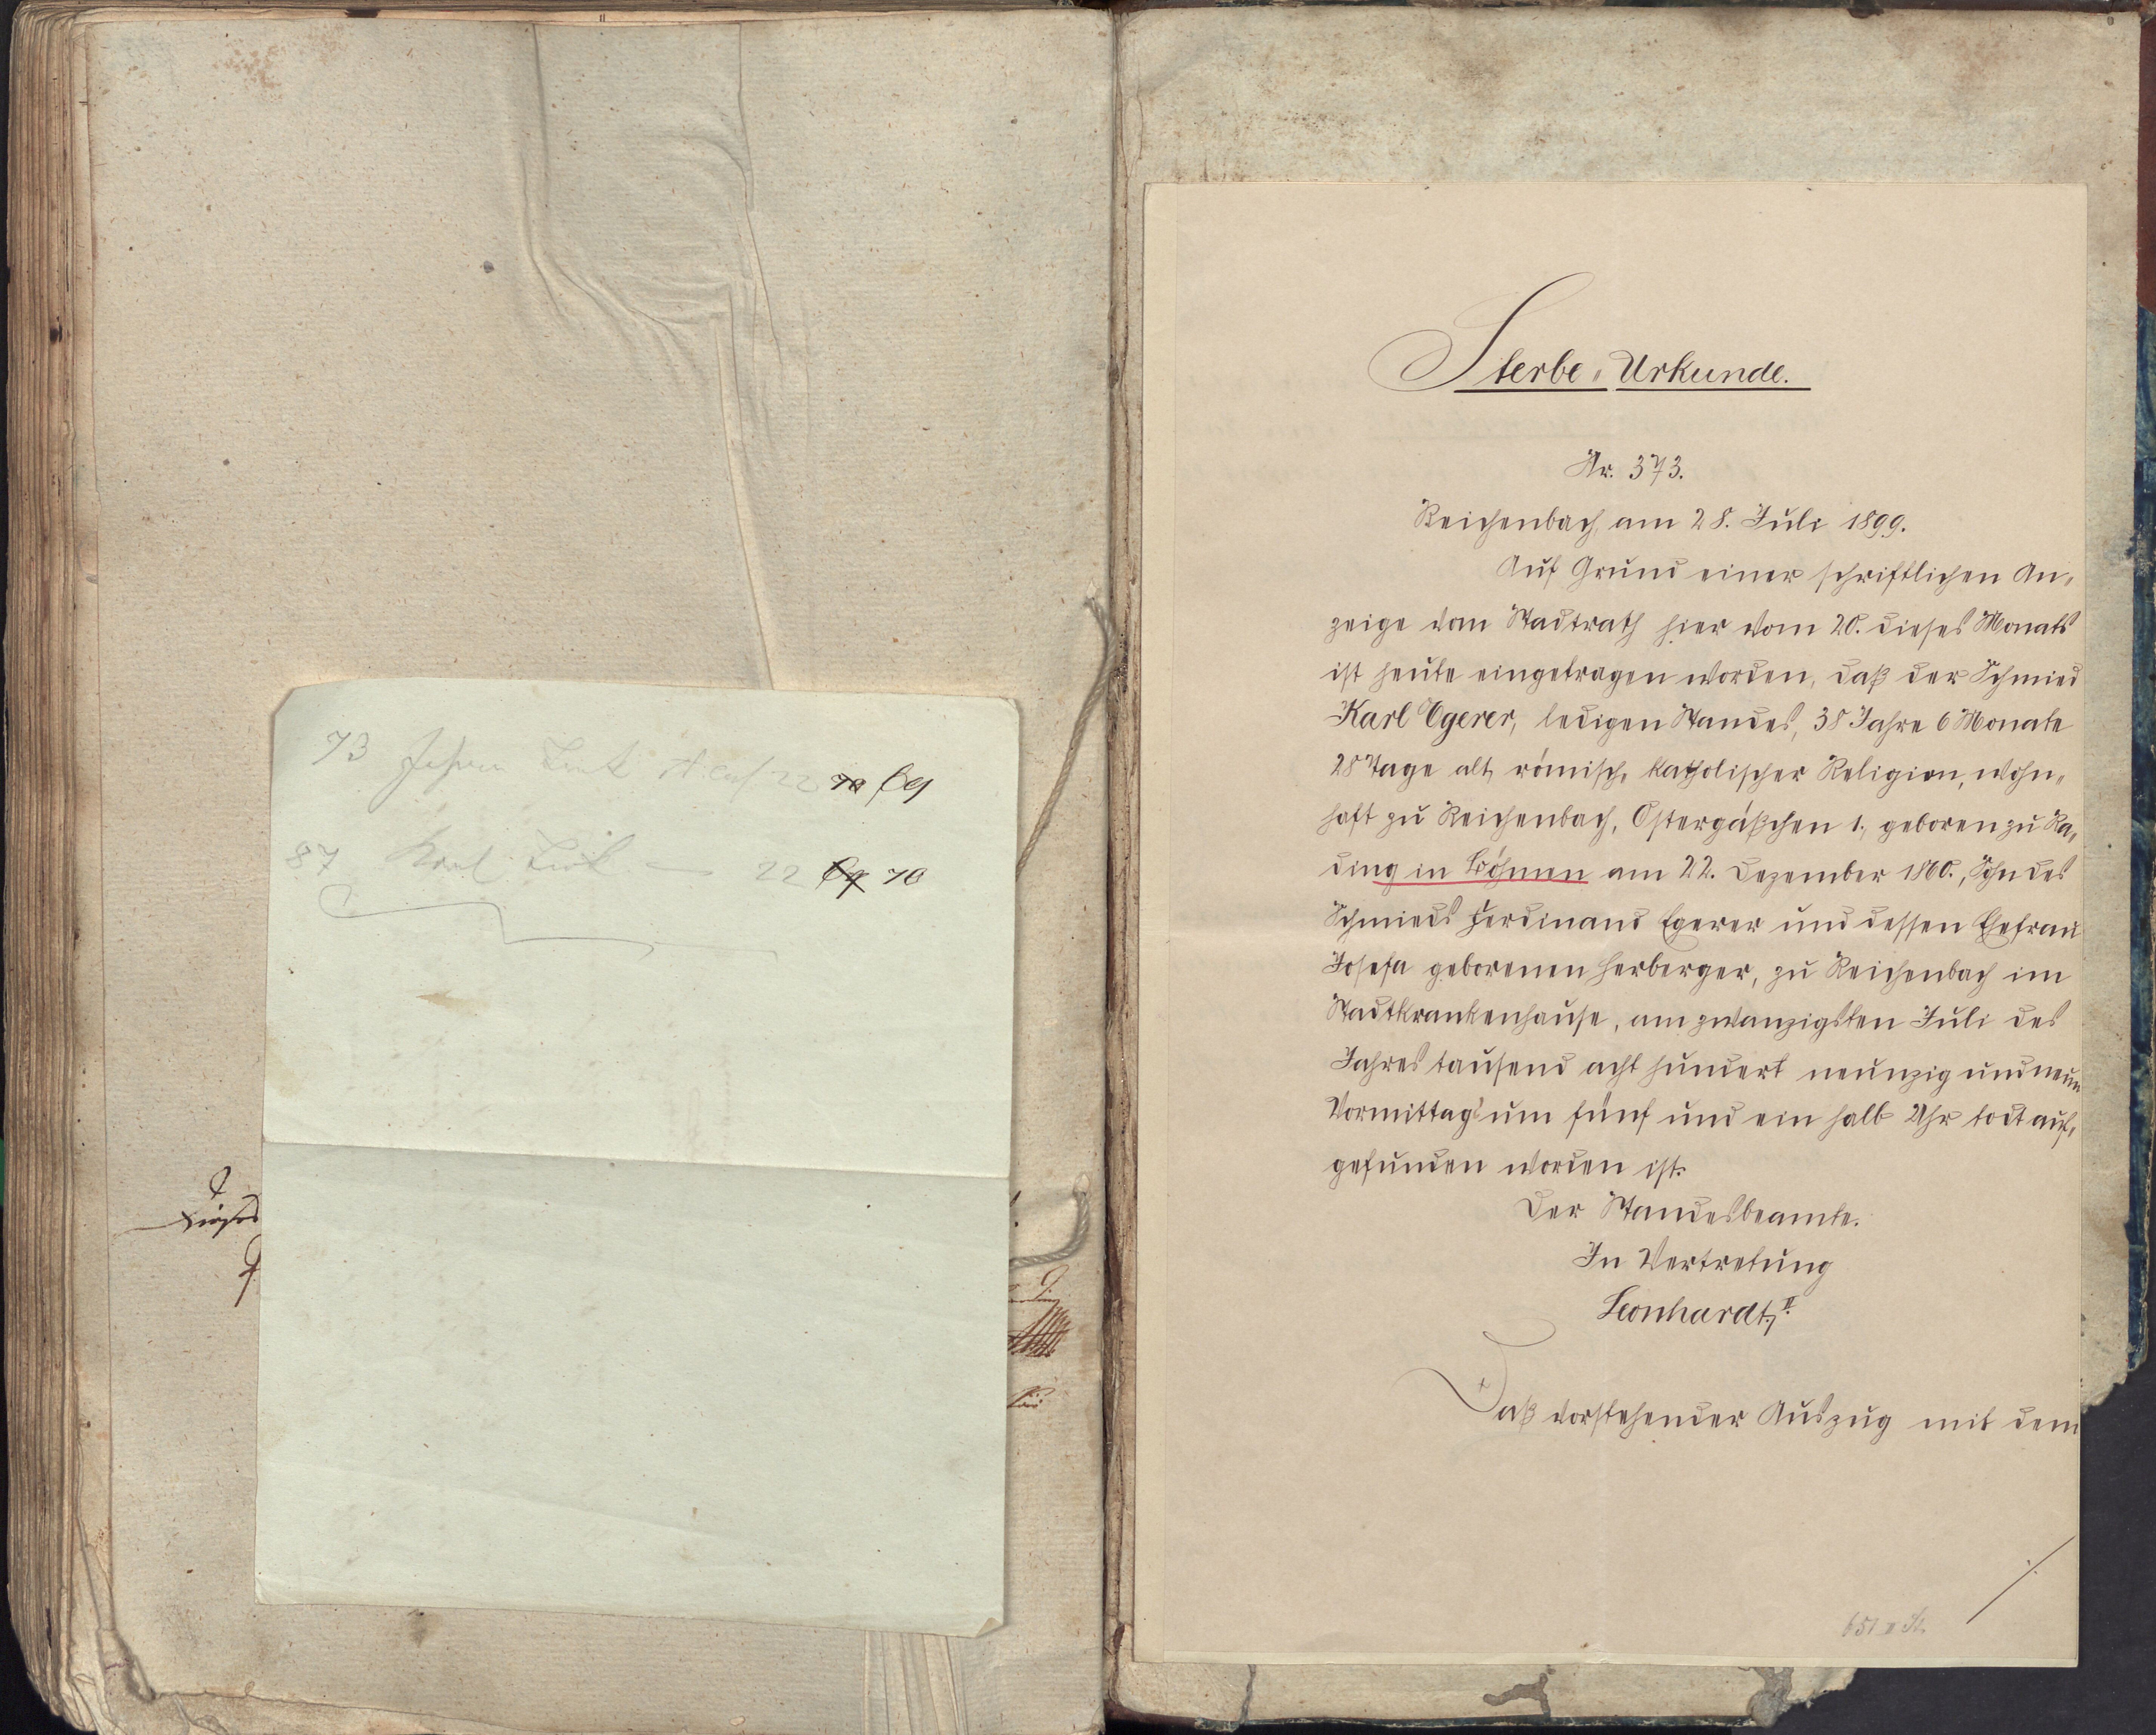 73
22 70 69
87 Karl
22 69 70
Sterbe-Urkunde.
Nr. 373.
Reichenbach, am 28. Juli 1899.
Auf Grund einer schriftlichen An-
zeige vom Stadtrath hier vom 20. dieses Monats
ist heute eingetragen worden, daß der Schmied
Karl Egerer, ledigen Standes, 38 Jahre 6 Monate
28 Tage alt, römisch-katholischer Religion, wohn-
haft zu Reichenbach, Ostergäßchen 1, geboren zu Ra-
ding in Böhmen am 22. Dezember 1860., Sohn des
Schmieds Ferdinand Egerer und dessen Ehefrau
Josefa geborenen Herberger, zu Reichenbach im
Stadtkrankenhause, am zwanzigsten Juli des
Jahres tausend acht hundert neunzig und neun
Vormittags um fünf und ein halb Uhr todt auf-
gefunden worden ist.
Der Standesbeamte.
In Vertretung
Leonhardt, II.
Daß vorstehender Auszug mit dem